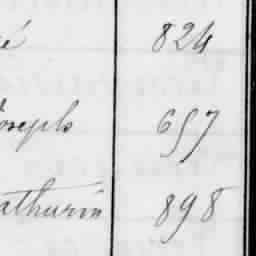 é 824
Joseph 657
athurin 898